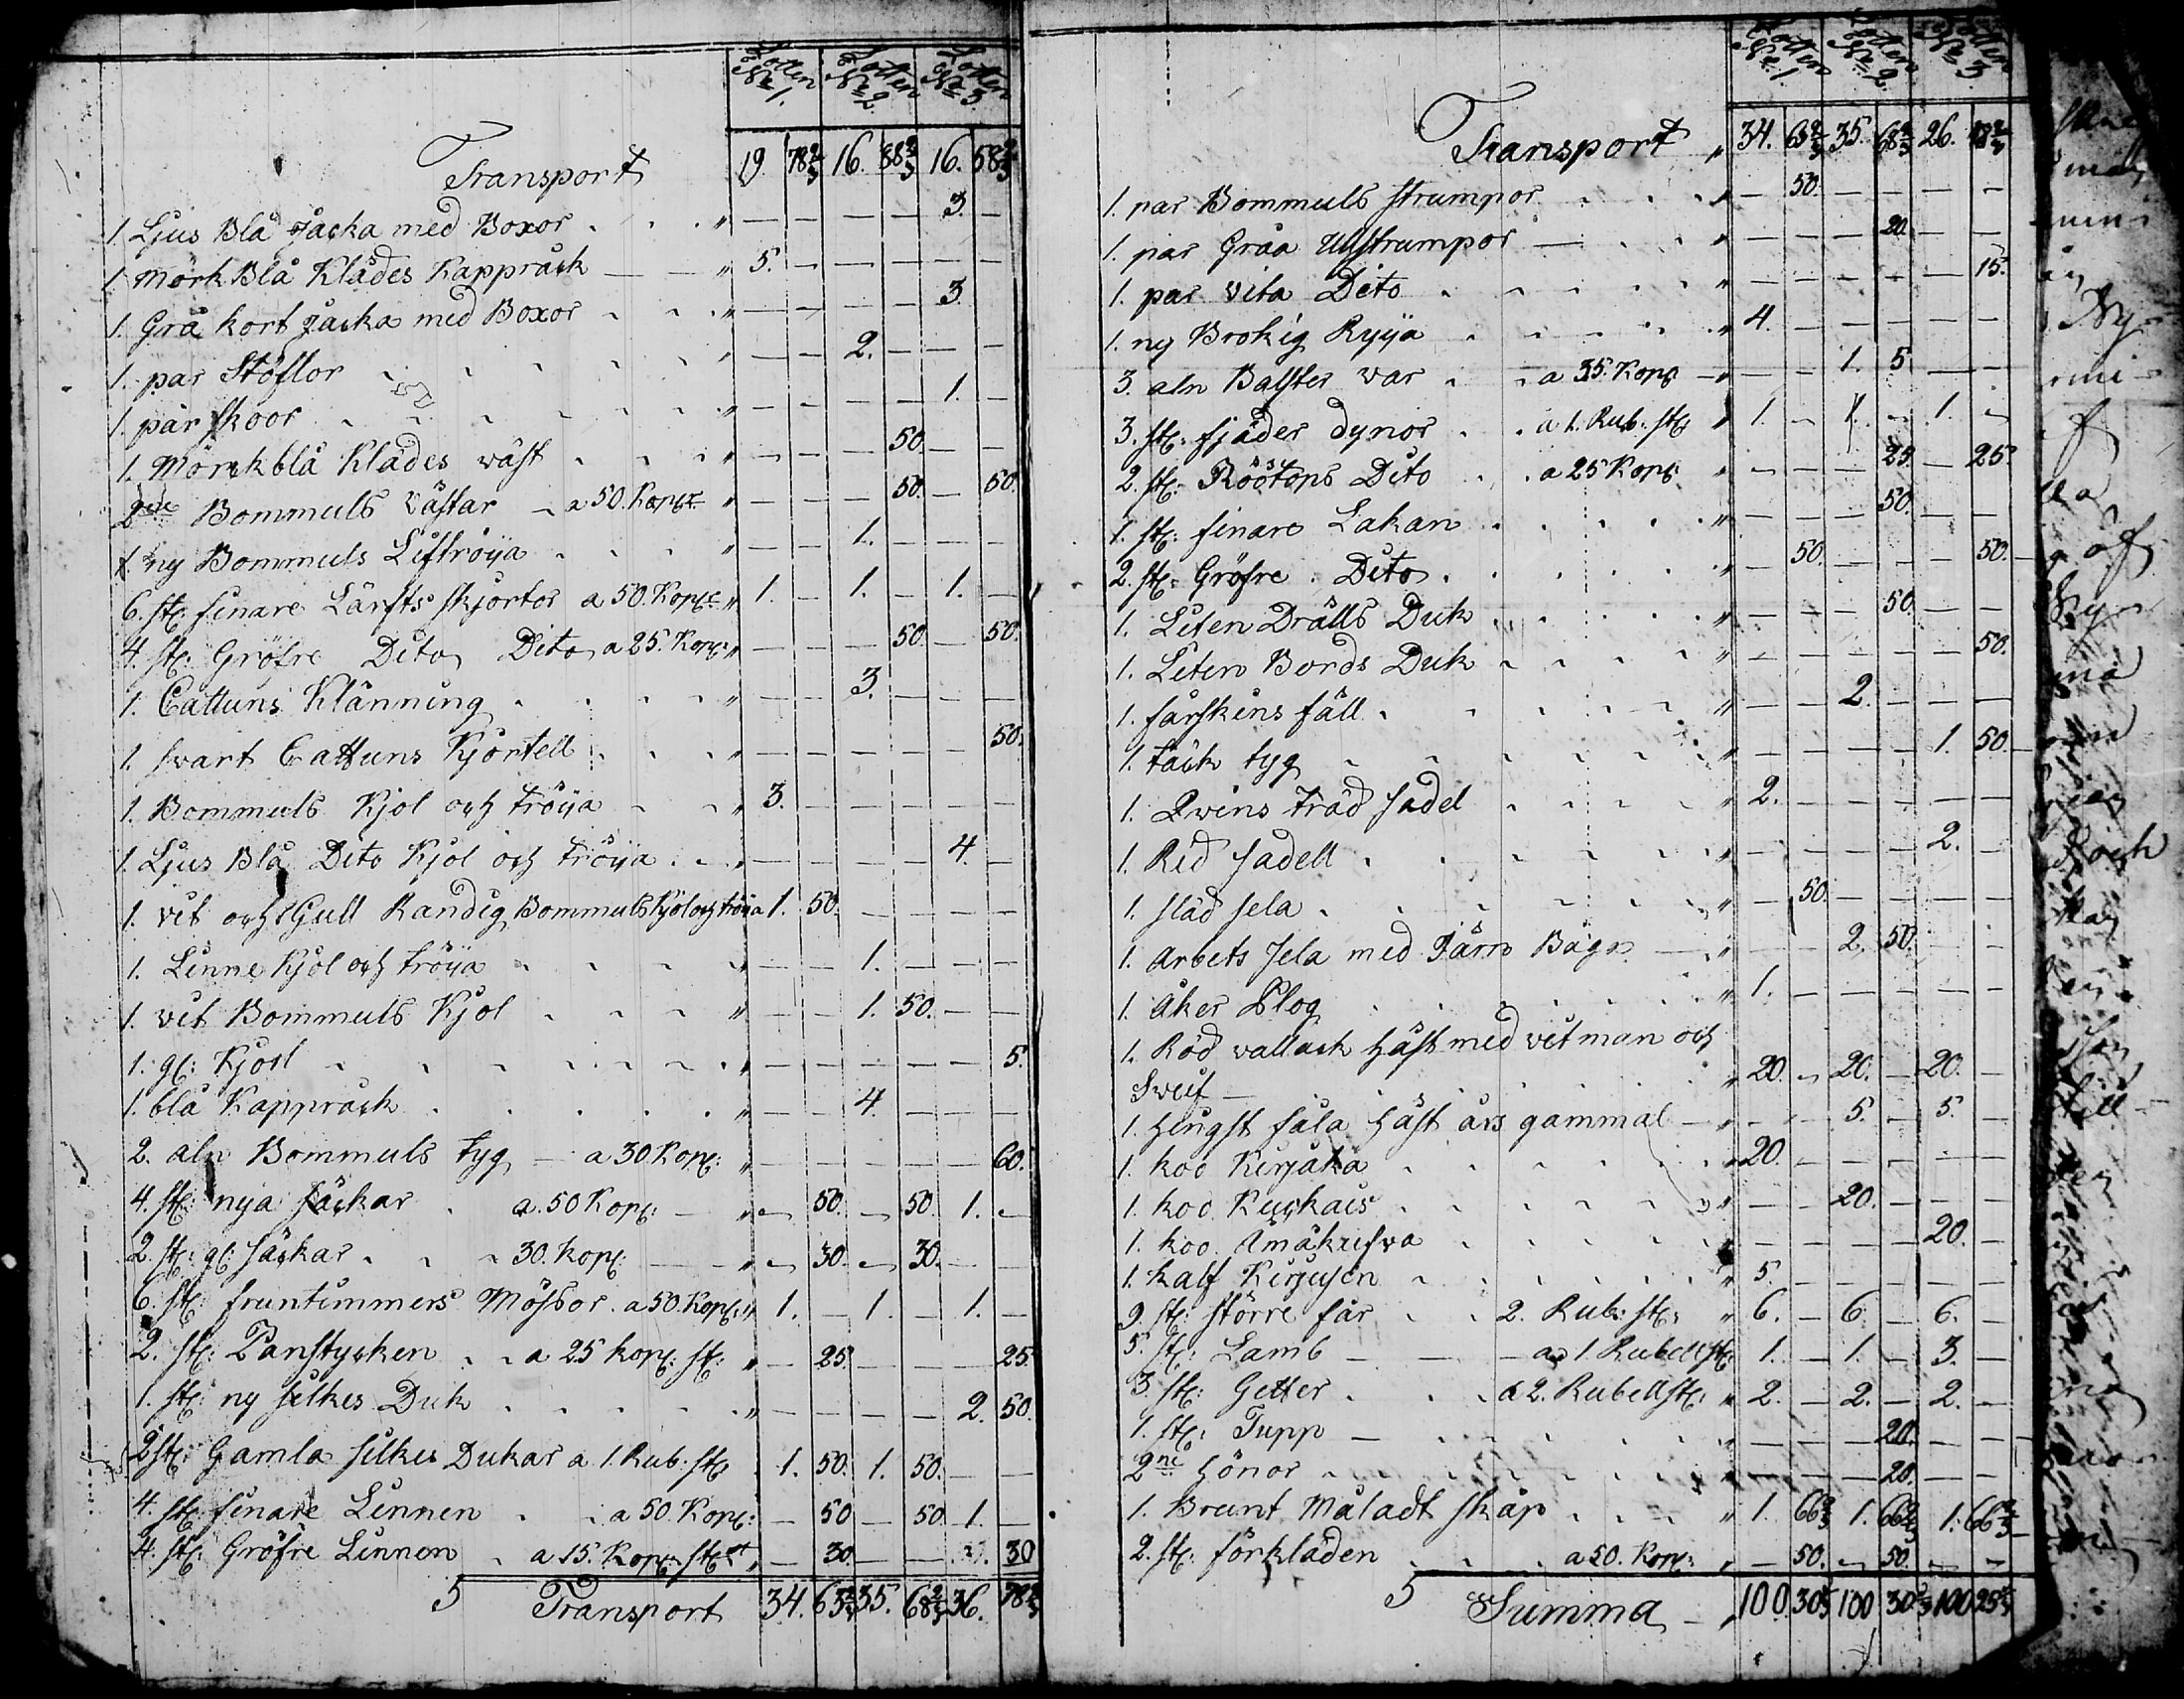 Lotten No 1. Lotten No 2. Lotten No 3.
Transport 19. 78 2/3 16. 88 2/3 16. 68 2/3
1. Ljus Blå Jacka med Boxor . . . " — — — — 3. —
1. Mörk Blå Klädes Kappråck — — " 5. — — — — —
1. Grå kort Jacka med Boxor . . . " — — — — 3 —
1. par Stöflor . . . . . . " — — 2. — — —
1. par skoor . . . . . . " — — — — 1. —
1. Mörckblå Klädes wäst . . . . " — — — 50. — —
2ne Bommuls västar — a 50. Kopek " — — — 50. — 50.
1. ny Bommuls Liftröija . . . . " — — 1. — — —
6. st: finare Lärfts skjortor a 50. Kopek " 1. — 1. — 1. —
4. st: Gröfre Dito Dito a 25. Kop: " — — — 50. — 50.
1. Cattuns Klänning . . . . " — — 3. — — —
1. svart Cattuns Kjortell . . . " — — — — — 50.
1. Bommuls Kjol och tröija . . " 3. — — — — —
1. Ljus Blå Dito Kjol och tröija . . " — — — — 4. —
1. vit och Gull Randig Bommuls Kjol och tröia 1. 50. — — — —
1. Linne Kjol och tröija . . . . " — — 1. — — —
1. vit Bommuls Kjol . . . . " — — 1. 50. — —
1. gl: Kjosl . . . . . . . " — — — — — 5.
1. blå Kappråck . . . . . . " — — 4. — — —
2. aln Bommuls tyg — a 30 Kop: " — — — — — 60.
4. st: nya säckar . a. 50 Kop: — " — 50. — 50. 1. —
2. st: gl: säckar . . . 30. kop: — — " — 30. — 30. — —
6. st: fruntimmers Mössor . a 50. Kop: " 1. — 1. — 1. —
2. st: Panstycken . . a 25 kop: st: " — 25. — — — 25
1. st: ny silkes Duk . . . . . " — — — — 2. 50.
2 st: Gamla silkes Dukar a 1. Rub: st: . 1. 50. 1. 50. — —
4. st: finare Linnen . . a 50. Kop: — 50 — 50. 1. —
4. st: Gröfre Linnen . a 15. Kop: st: " — 30. — — — 30
5 Transport 34. 63 2/3 35. 68 2/3 36. 78 2/3
Lotten No 1. Lotten No 2. Lotten No 3
Transport " 34. 63 2/3 35. 68 2/3 26. 78 2/3
1. par Bommuls strumpor . . . " — 50. — — — —
1. par Gråa Ullstrumpor — . . " — — — 20. — —
1. par vita Dito . . . . . " — — — — — 15.
1. ny Brokig Ryija . . . . . " 4. — — — — —
3. aln Balster war . . a 35. Kop: — " — — 1. 5 — —
3. st: fjäder dynor . . a 1. Rub: st: " 1. — 1. — 1. —
2. st: Röötops Dito . . a 25 Kop: " — — — 25. — 25.
1. st: finare Lakan . . . . . " — — — 50. — —
2. st: Gröfre . Dito . . . . . " — 50. — — — 50.
1. Liten Drälls Duk . . . . . " — — — 50. — —
1. Liten Bords Duk . . . . . " — — — — — 50.
1. fårskins fäll . . . . . . " — — 2. — — —
1. täck tyg . . . . . . " — — — — 1. 50.
1. Qwins träd sadel . . . . " 2. — — — — —
1. Rid sadell . . . . . . " — — — — 2. —
1. släd sela . . . . . . " — 50. — — — —
1. arbets sela med Järn Bågn — " — — 2. 50. — —
1. åker Plog . . . . . . . " 1. — — — — —
1. Röd vallack häst med vit man och
Swuf — . . . . . . " 20. — 20. — 20. —
1. hingst fåla häst års gammal — " — — 5. — 5. —
1. koo Kirjaka . . . . . . " 20. — — — — —
1. koo Kuckais . . . . . . " — — 20. — — —
1. koo Ämäkrifva . . . . . " — — — — 20. —
1. kalf Kirjusen . . . . . . " 5. — — — — —
9. st: större får . . 2. Rub: st: " 6. — 6. — 6. —
5. st: Lamb — — — a 1. Rubell st: 1. — 1. — 3. —
3. st: Getter . . . a 2. Rubell st: " 2. — 2. — 2. —
1. st: Tupp — . . . . . " — — — 20. — —
2ne hönor . . . . . . . " — — — 20. — —
1. Brunt Måladt skåp . . . . " 1. 66 2/3 1. 66 2/3 1. 66 2/3
2. st: förkläden . . . a 50. Kop: " — 50. — 50. — —
5 Summa — " 100 30 1/3 100 30 2/3 100 25 1/3